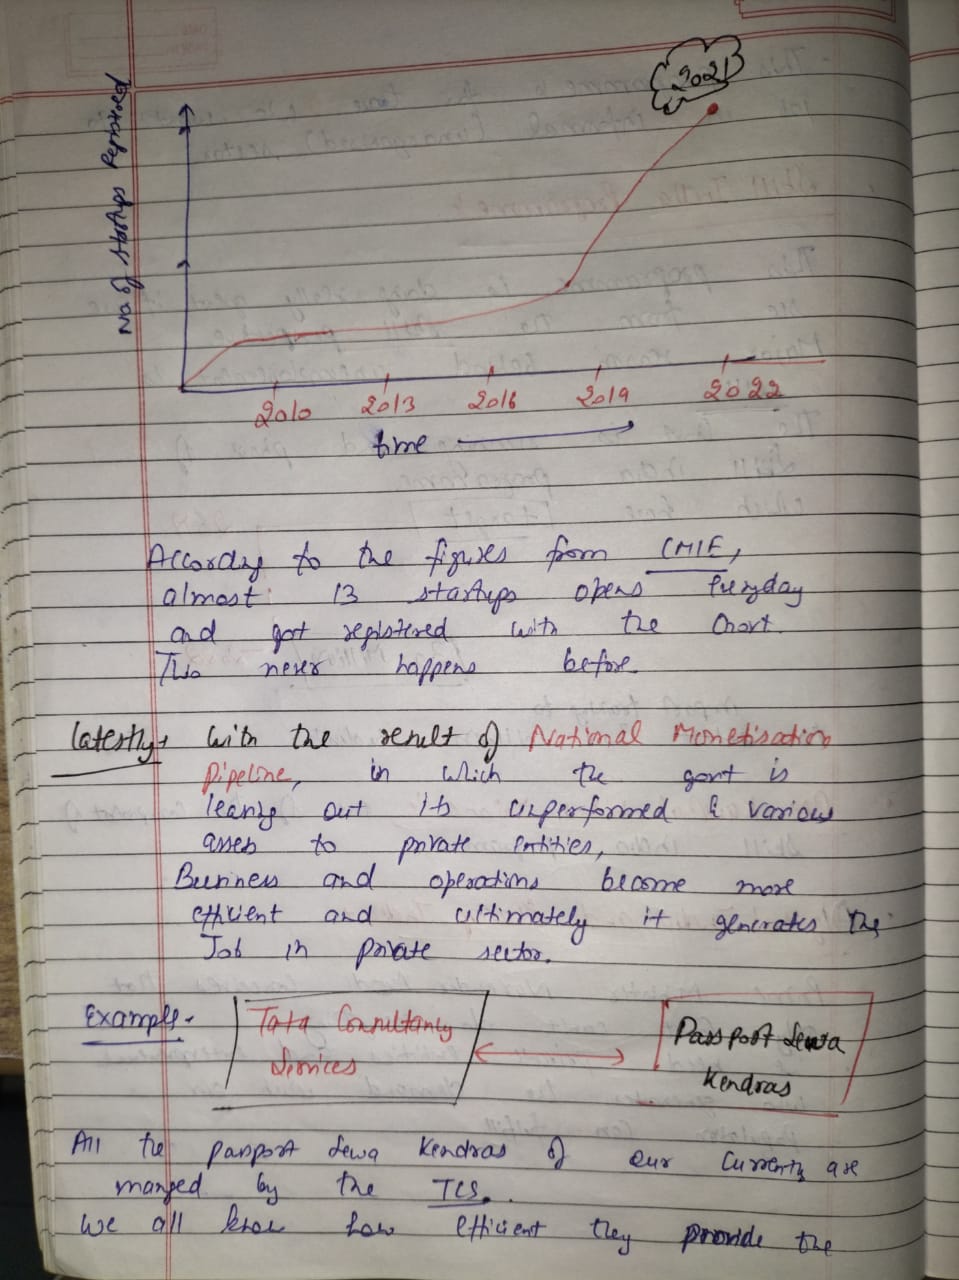 2021
No. of Startups Registered
2010 2013 2016 2019 2022
time
According to the figures from CMIE,
almost 13 startups opens Everyday
and got registered with the Govt.
This never happens before.
Latestly, With the result of National Monetisation
Pipeline, in which the govt is
leasing out its unperformed & various
assets to private entities,
Business and operations become more
efficient and ultimately it generates the
Job in private sector.
Example- Tata Consultancy Services
Passport Sewa Kendras
All the passport Sewa Kendras of our are
manged by the TCS.
We all know how efficient they provide the